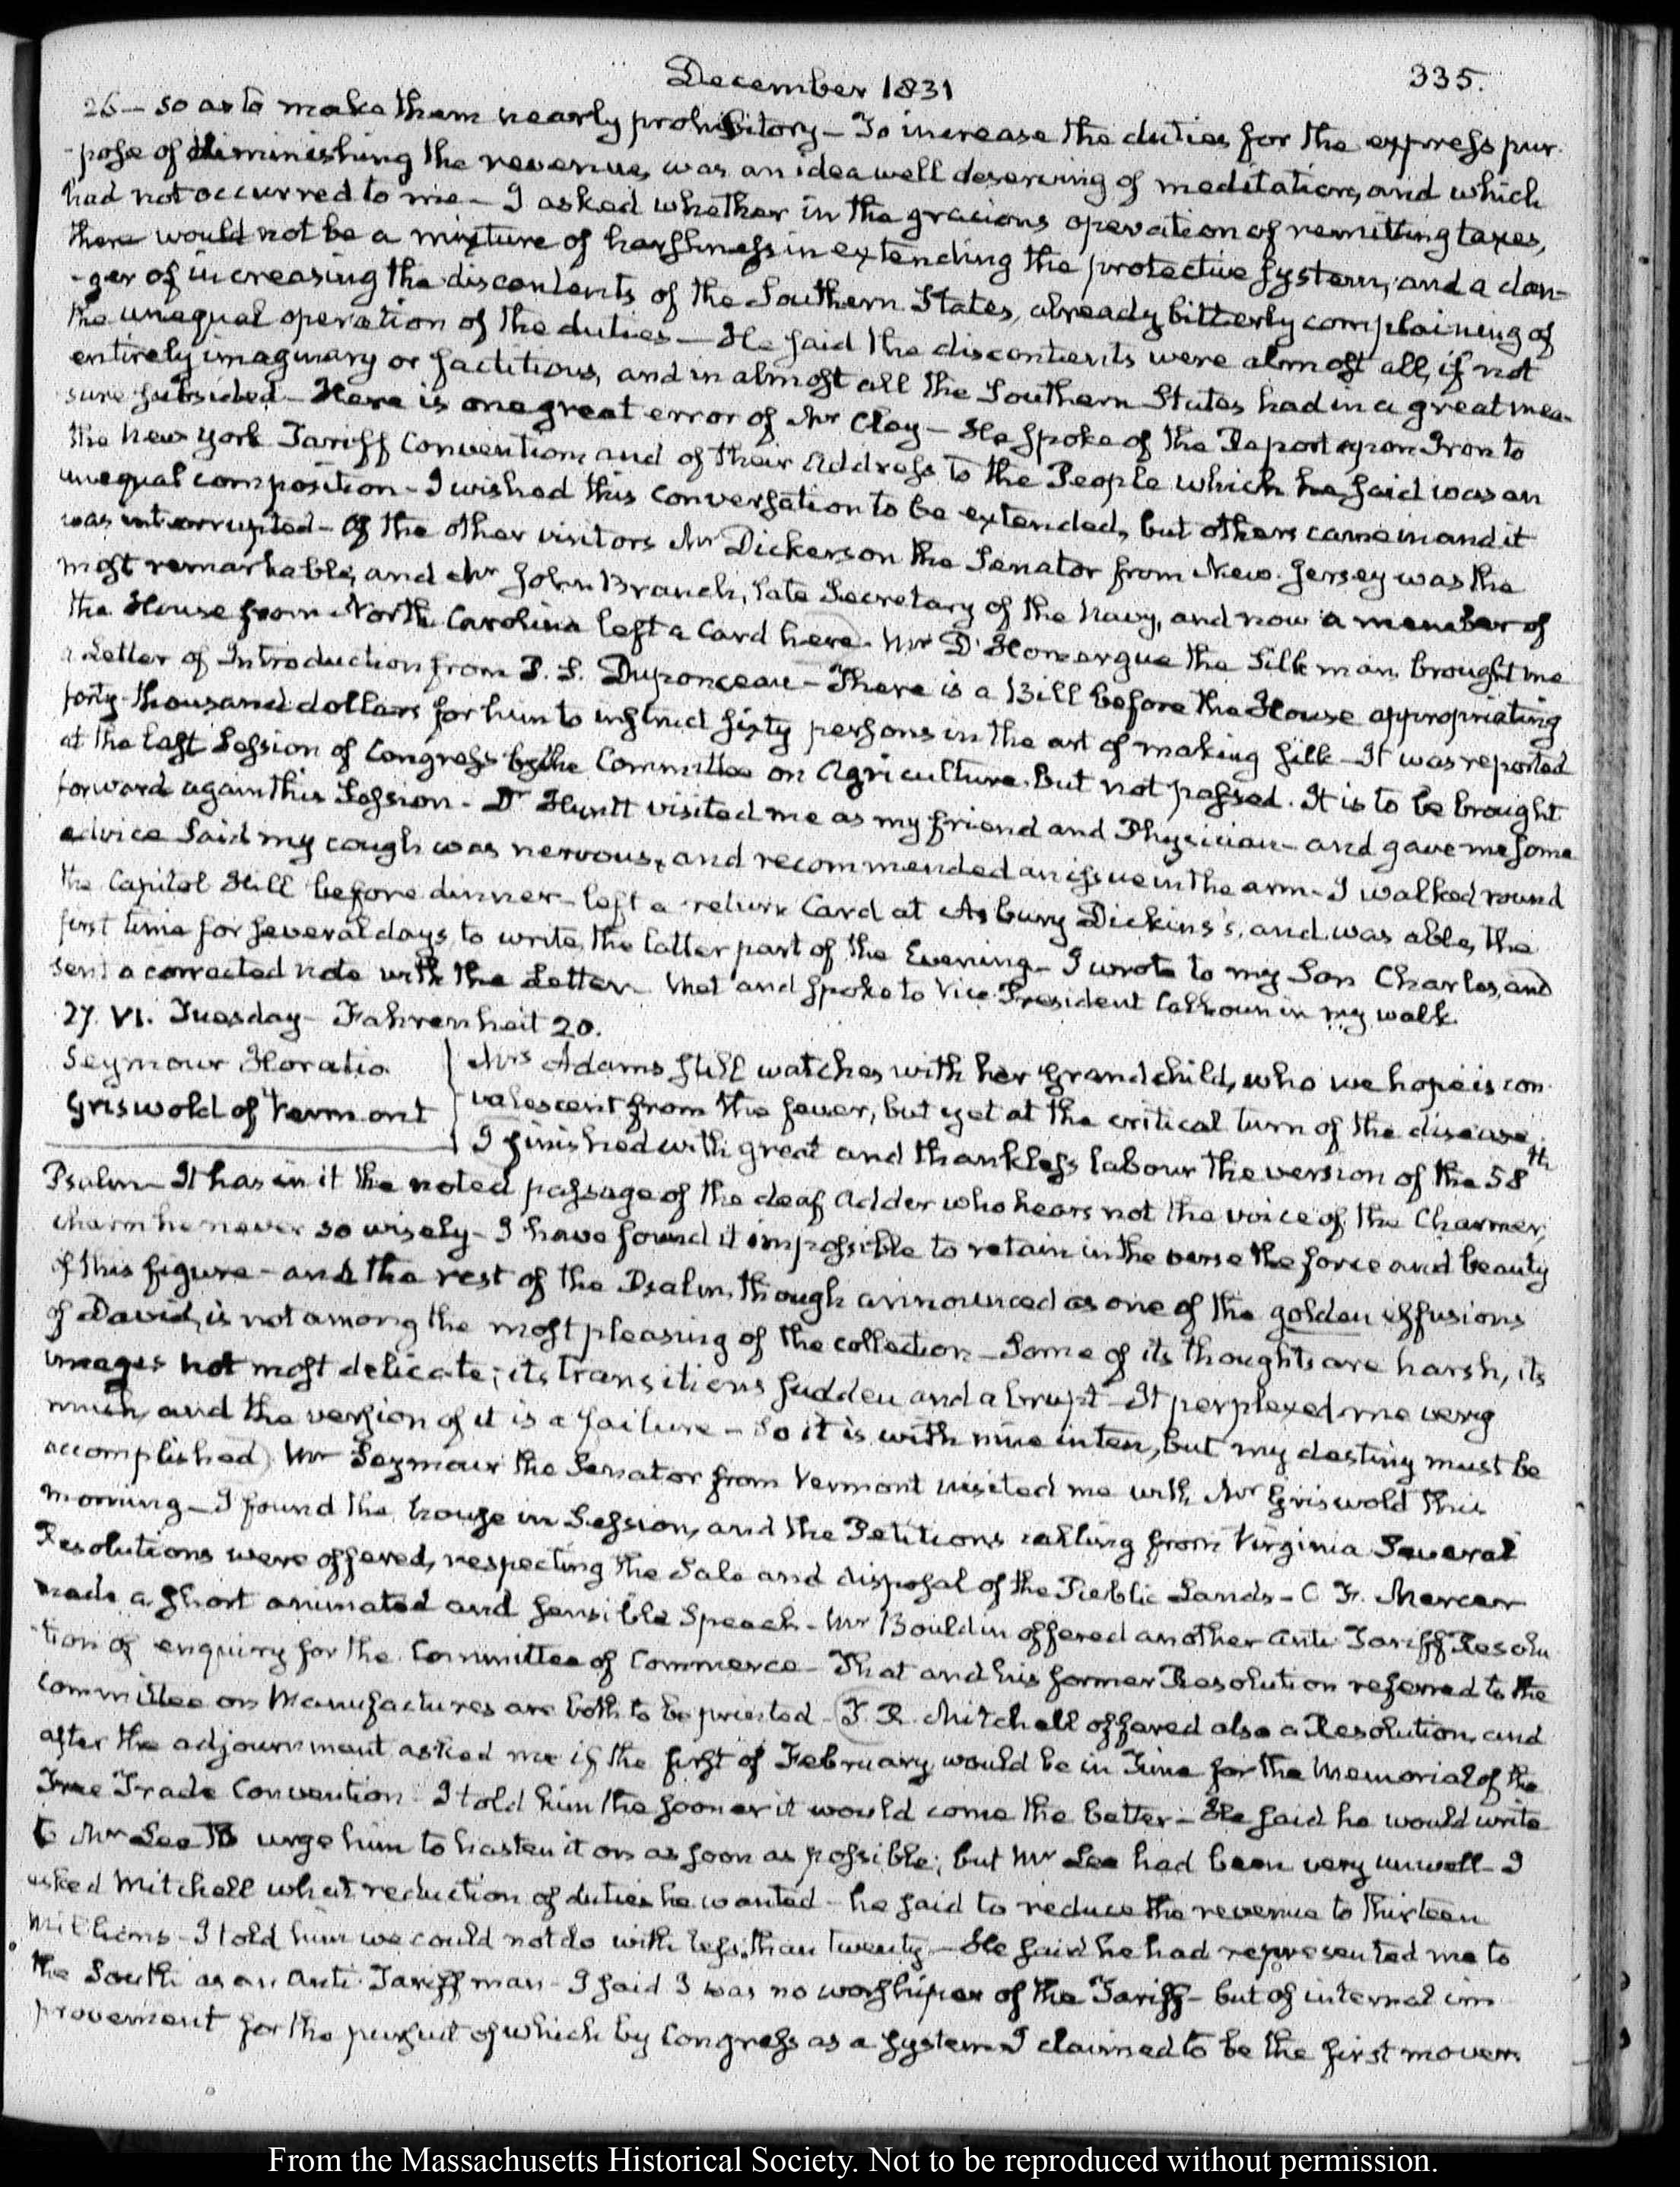 December 1831
335.
26 — so as to make them nearly prohibitory — To increase the duties for the express pur-
-pose of diminishing the revenue, was an idea well deserving of meditation, and which
had not occurred to me — I asked whether in the gracious operation of remitting taxes,
there would not be a mixture of harshness in extending the protective system, and a dan-
-ger of increasing the discontents of the Southern States, already bitterly complaining of
the unequal operation of the duties — He said the discontents were almost all, if not
entirely imaginary or factitious, and in almost all the Southern States had in a great mea-
sure subsided — Here is one great error of Mr Clay — He spoke of the Report upon Iron to
the New York Tariff Convention, and of their Address to the People which he said was an
unequal composition — I wished this conversation to be extended, but others came in and it
was interrupted — Of the other visitors Mr Dickerson the Senator from New Jersey was the
most remarkable, and Mr John Branch, late Secretary of the Navy, and now a member of
the House from North Carolina left a Card here. Mr D'Homergue the Silk man, brought me
a Letter of Introduction from P. S. Duponceau — There is a Bill before the House appropriating
forty thousand dollars for him to instruct sixty persons in the art of making silk — It was reported
at the last Session of Congress by the Committee on Agriculture. But not passed. It is to be brought
forward again this Session — Dr Huntt visited me as my friend and Physician — and gave me some
advice said my cough was nervous, and recommended an issue in the arm — I walked round
the Capitol Hill before dinner — left a return Card at Asbury Dickins's, and was able, the
first time for several days, to write, the latter part of the Evening — I wrote to my Son Charles, and
sent a corrected note with the Letter — Met and spoke to Vice President Calhoun in my walk.
27. VI. Tuesday — Fahrenheit 20.
Seymour Horatio
Griswold of Vermont
Mrs Adams still watches with her Grandchild, who we hope is con-
valescent from the fever, but yet at the critical turn of the disease.
I finished with great and thankless labour the version of the 58th
Psalm — It has in it the noted passage of the deaf adder who hears not the voice of the Charmer,
charm he never so wisely — I have found it impossible to retain in the verse the force and beauty
of this figure — and the rest of the Psalm, though announced as one of the golden effusions
of David, is not among the most pleasing of the collection — Some of its thoughts are harsh, its
images not most delicate; its transitions sudden and abrupt — It perplexed me very
much, and the version of it is a failure — So it is with nine in ten, but my destiny must be
accomplished) Mr Seymour the Senator from Vermont visited me with Mr Griswold this
morning — I found the house in Session, and the Petitions calling from Virginia Several
Resolutions were offered, respecting the Sale and disposal of the Public Lands — C. F. Mercer
made a short animated and sensible Speech — Mr Bouldin offered another Anti Tariff Resolu-
-tion of enquiry for the Committee of Commerce — That and his former Resolution referred to the
Committee on Manufactures are both to be printed — T. R. Mitchell offered also a Resolution, and
after the adjournment asked me if the first of February would be in Time for the Memorial of the
Free Trade Convention — I told him the sooner it would come the better — He said he would write
to Mr Lee to urge him to hasten it on as soon as possible; but Mr Lee had been very unwell — I
asked Mitchell what reduction of duties he wanted — he said to reduce the revenue to thirteen
Millions — I told him we could not do with less than twenty — He said he had represented me to
the South as an Anti-Tariff man — I said I was no worshiper of the Tariff — but of internal im-
provement for the pursuit of which by Congress as a system I claimed to be the first mover.
From the Massachusetts Historical Society. Not to be reproduced without permission.